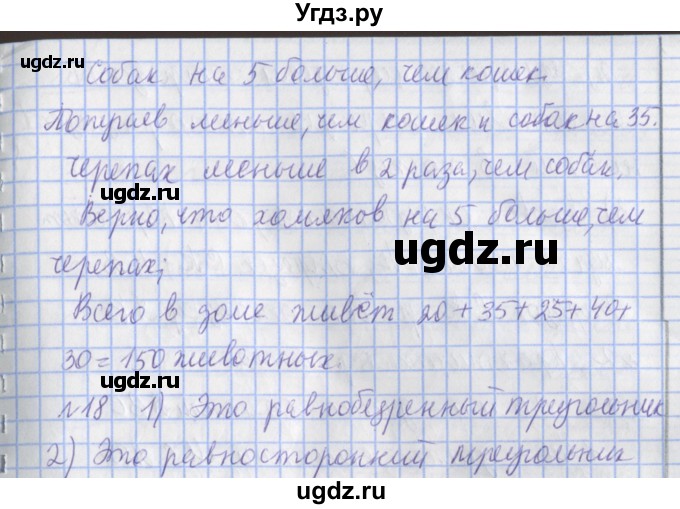 Угдз.ру
Собак на 5 больше, чем кошек.
Попугаев меньше, чем кошек и собак на 35.
Черепах меньше в 2 раза, чем собак.
Верно, что хомяков на 5 больше, чем
черепах;
Всего в зоме живёт 20+35+25+40+
30=150 животных
№18 1) Это равнобедренный треугольник
2) Это равносторонний треугольник
ugdz.ru
ugdz.ru
ugdz.ru
ugdz.ru
ugdz.ru
ugdz.ru
ugdz.ru